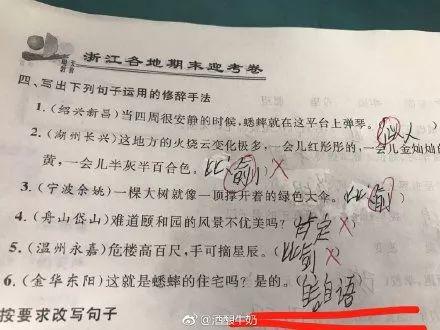 浙江各地期末迎考卷
四、写出下列句子运用的修辞手法
1.(绍兴新昌)当四周很安静的时候,蟋蟀就在这平台上弹琴。(拟人
2.(湖州长兴)这地方的火烧云变化极多,一会儿红彤彤的,一会儿金灿灿的
黄,一会儿半灰半百合色。(比
3.(宁波余姚)一棵大树就像一顶撑开着的绿色大伞。(比
4.(舟山岱山)难道颐和园的风景不优美吗?(肯定
5.(温州永嘉)危楼高百尺,手可摘星辰。(比
6.(金华东阳)这就是蟋蟀的住宅吗?是的。(自语
按要求改写句子
@酒酿牛奶